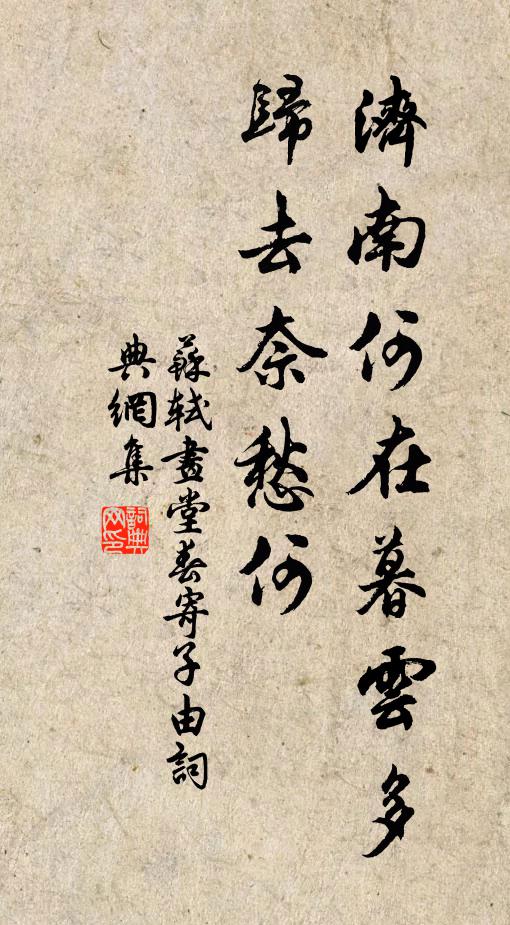 濟南何在暮雲多
歸去奈愁何
蘇軾畫堂春寄子由詞
典網集
詞典
网印